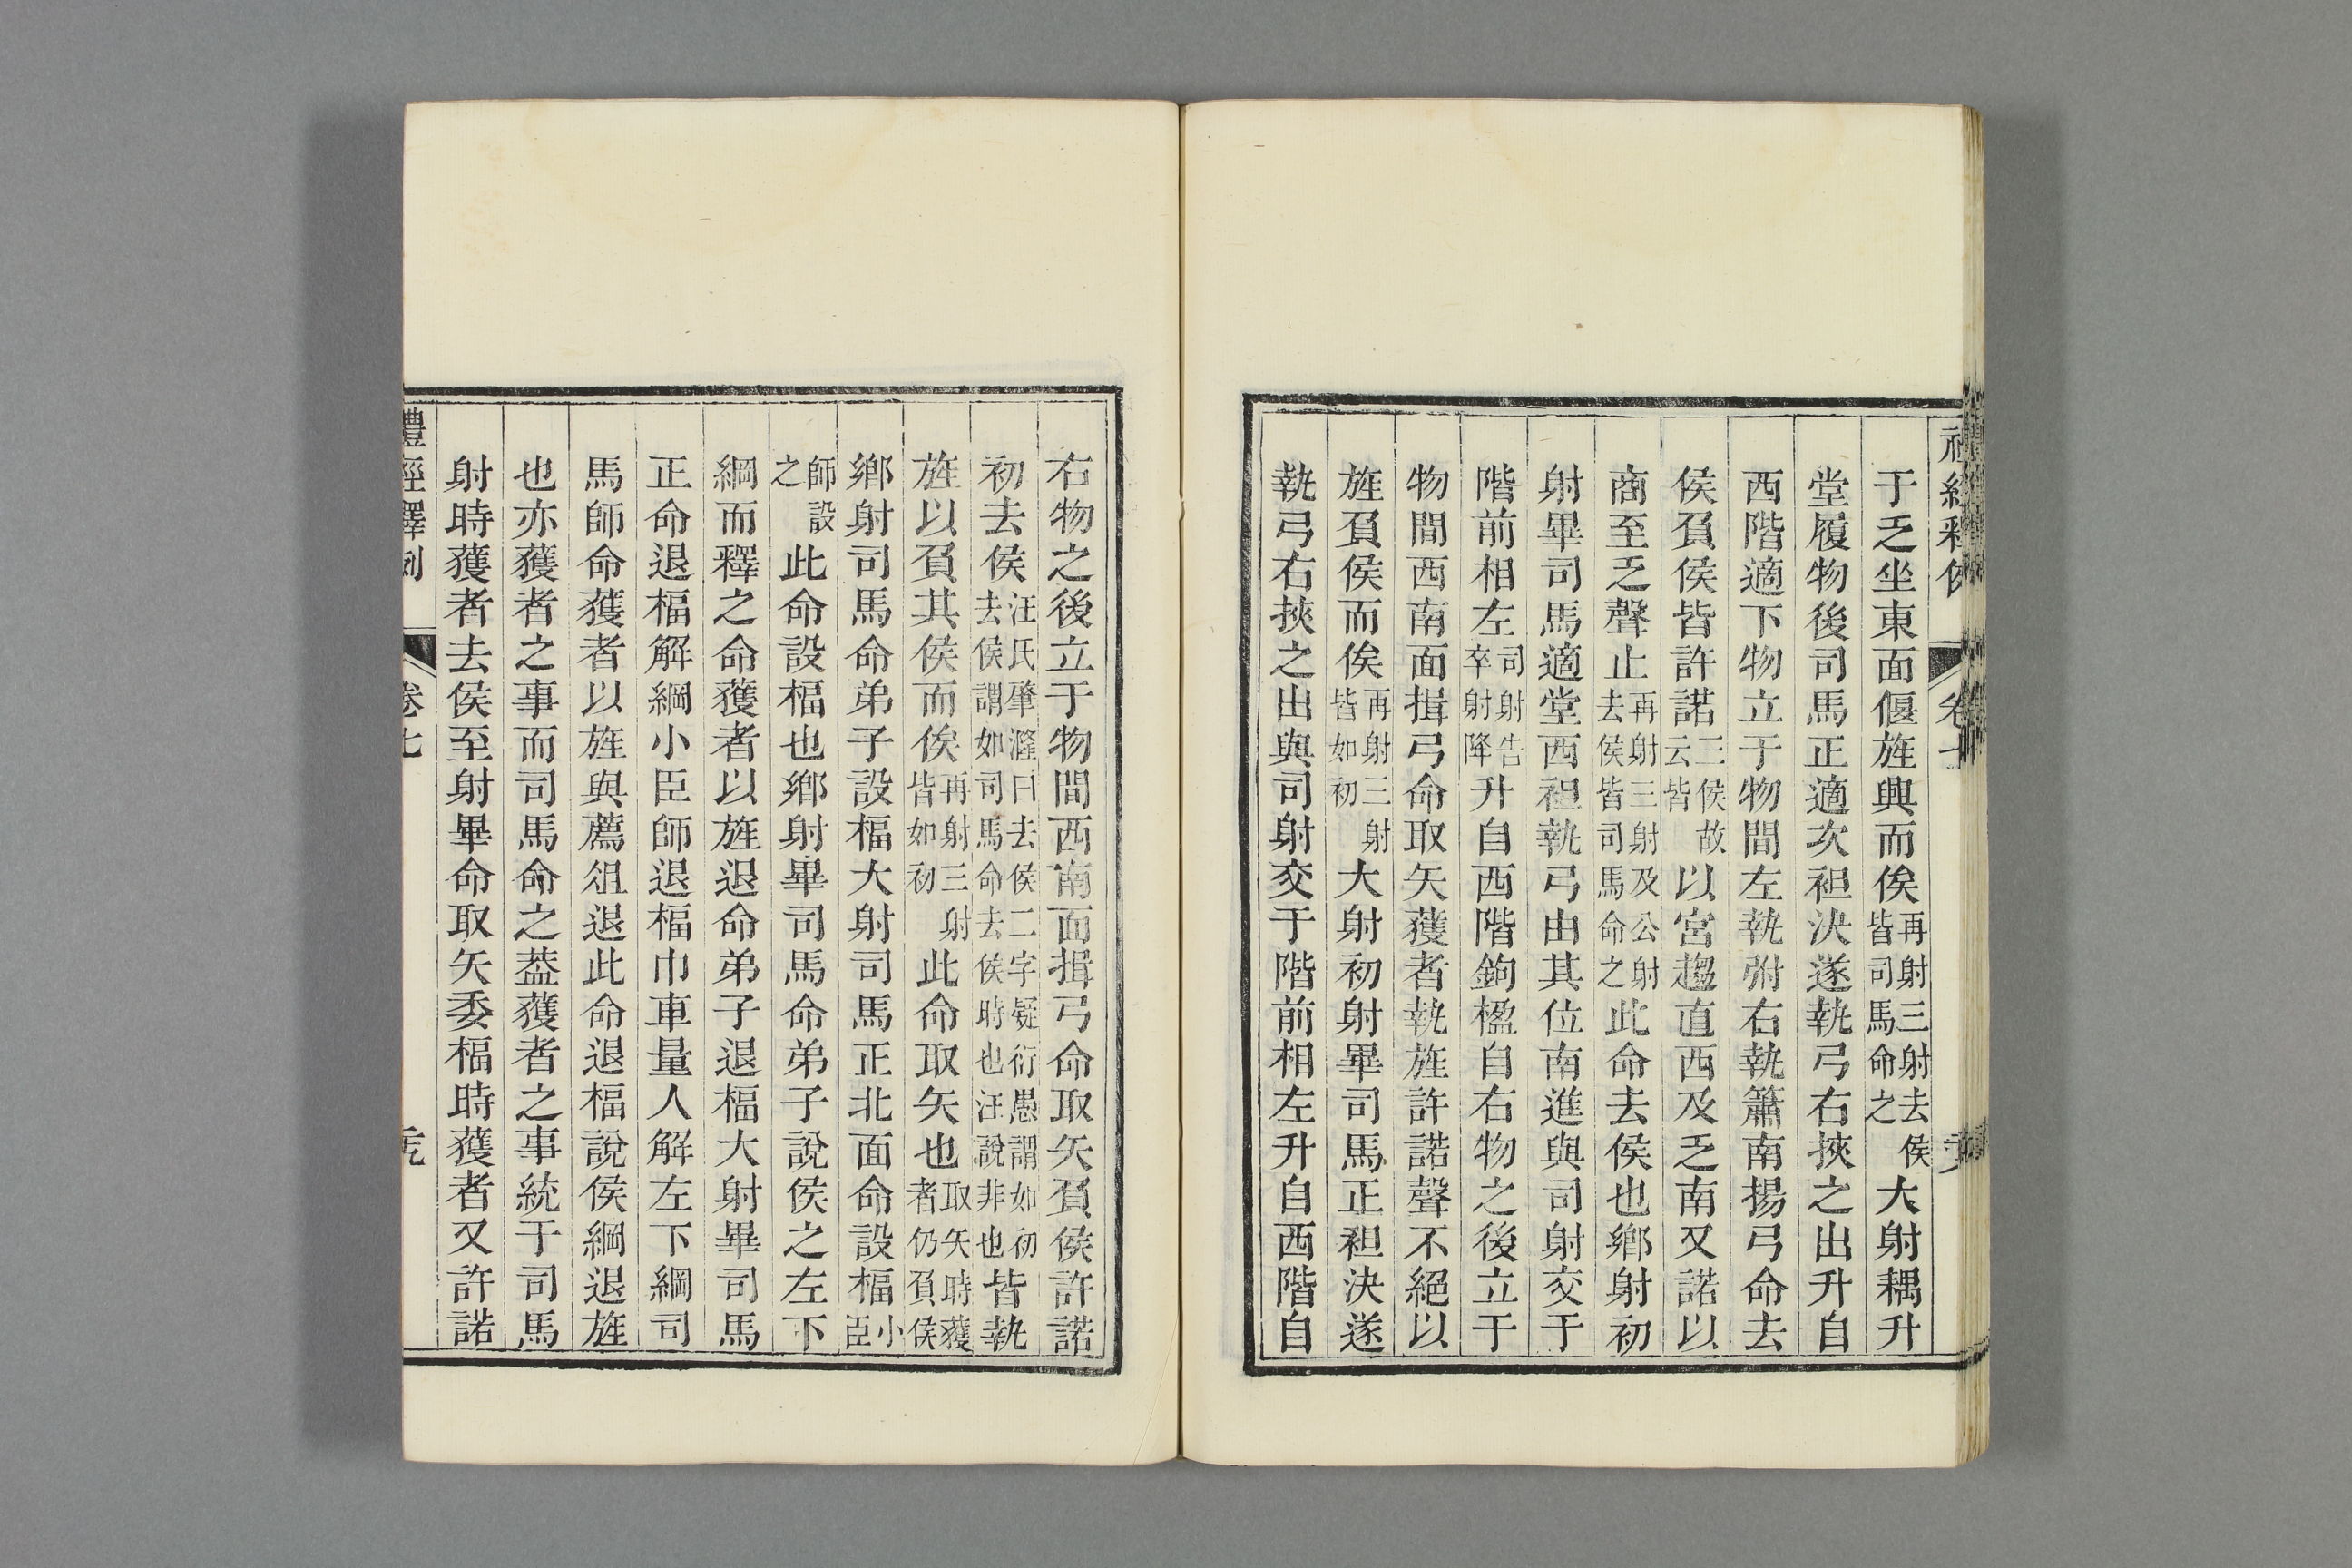 于乏坐東面偃旌興而俟再射三射去侯皆司馬命之大射耦升
堂履物後司馬正適次袒決遂執弓右挾之出升自
西階適下物立于物間左執弣右執簫南揚弓命去
侯負侯皆許諾三侯故云皆以宮趨直西及乏南又諾以
商至乏聲止再射三射及公射去侯皆司馬命之此命去侯也鄉射初
射畢司馬適堂西袒執弓由其位南進與司射交于
階前相左司射告卒射降升自西階鉤楹自右物之後立于
物間西南面揖弓命取矢獲者執旌許諾聲不絕以
旌負侯而俟再射三射皆如初大射初射畢司馬正袒決遂
執弓右挾之出與司射交于階前相左升自西階自
右物之後立于物間西南面揖弓命取矢負侯許諾
初去侯汪氏肇漋曰去侯二字疑衍愚謂如初去侯謂如司馬命去侯時也汪說非也皆執
旌以負其侯而俟再射三射皆如初此命取矢也取矢時獲者仍負侯
鄉射司馬命弟子設楅大射司馬正北面命設楅小臣
師設之此命設楅也鄉射畢司馬命弟子說侯之左下
綱而釋之命獲者以旌退命弟子退楅大射畢司馬
正命退楅解綱小臣師退楅巾車量人解左下綱司
馬師命獲者以旌與薦俎退此命退楅說侯綱退旌
也亦獲者之事而司馬命之葢獲者之事統于司馬
射時獲者去侯至射畢命取矢委楅時獲者又許諾
禮經釋例
卷七